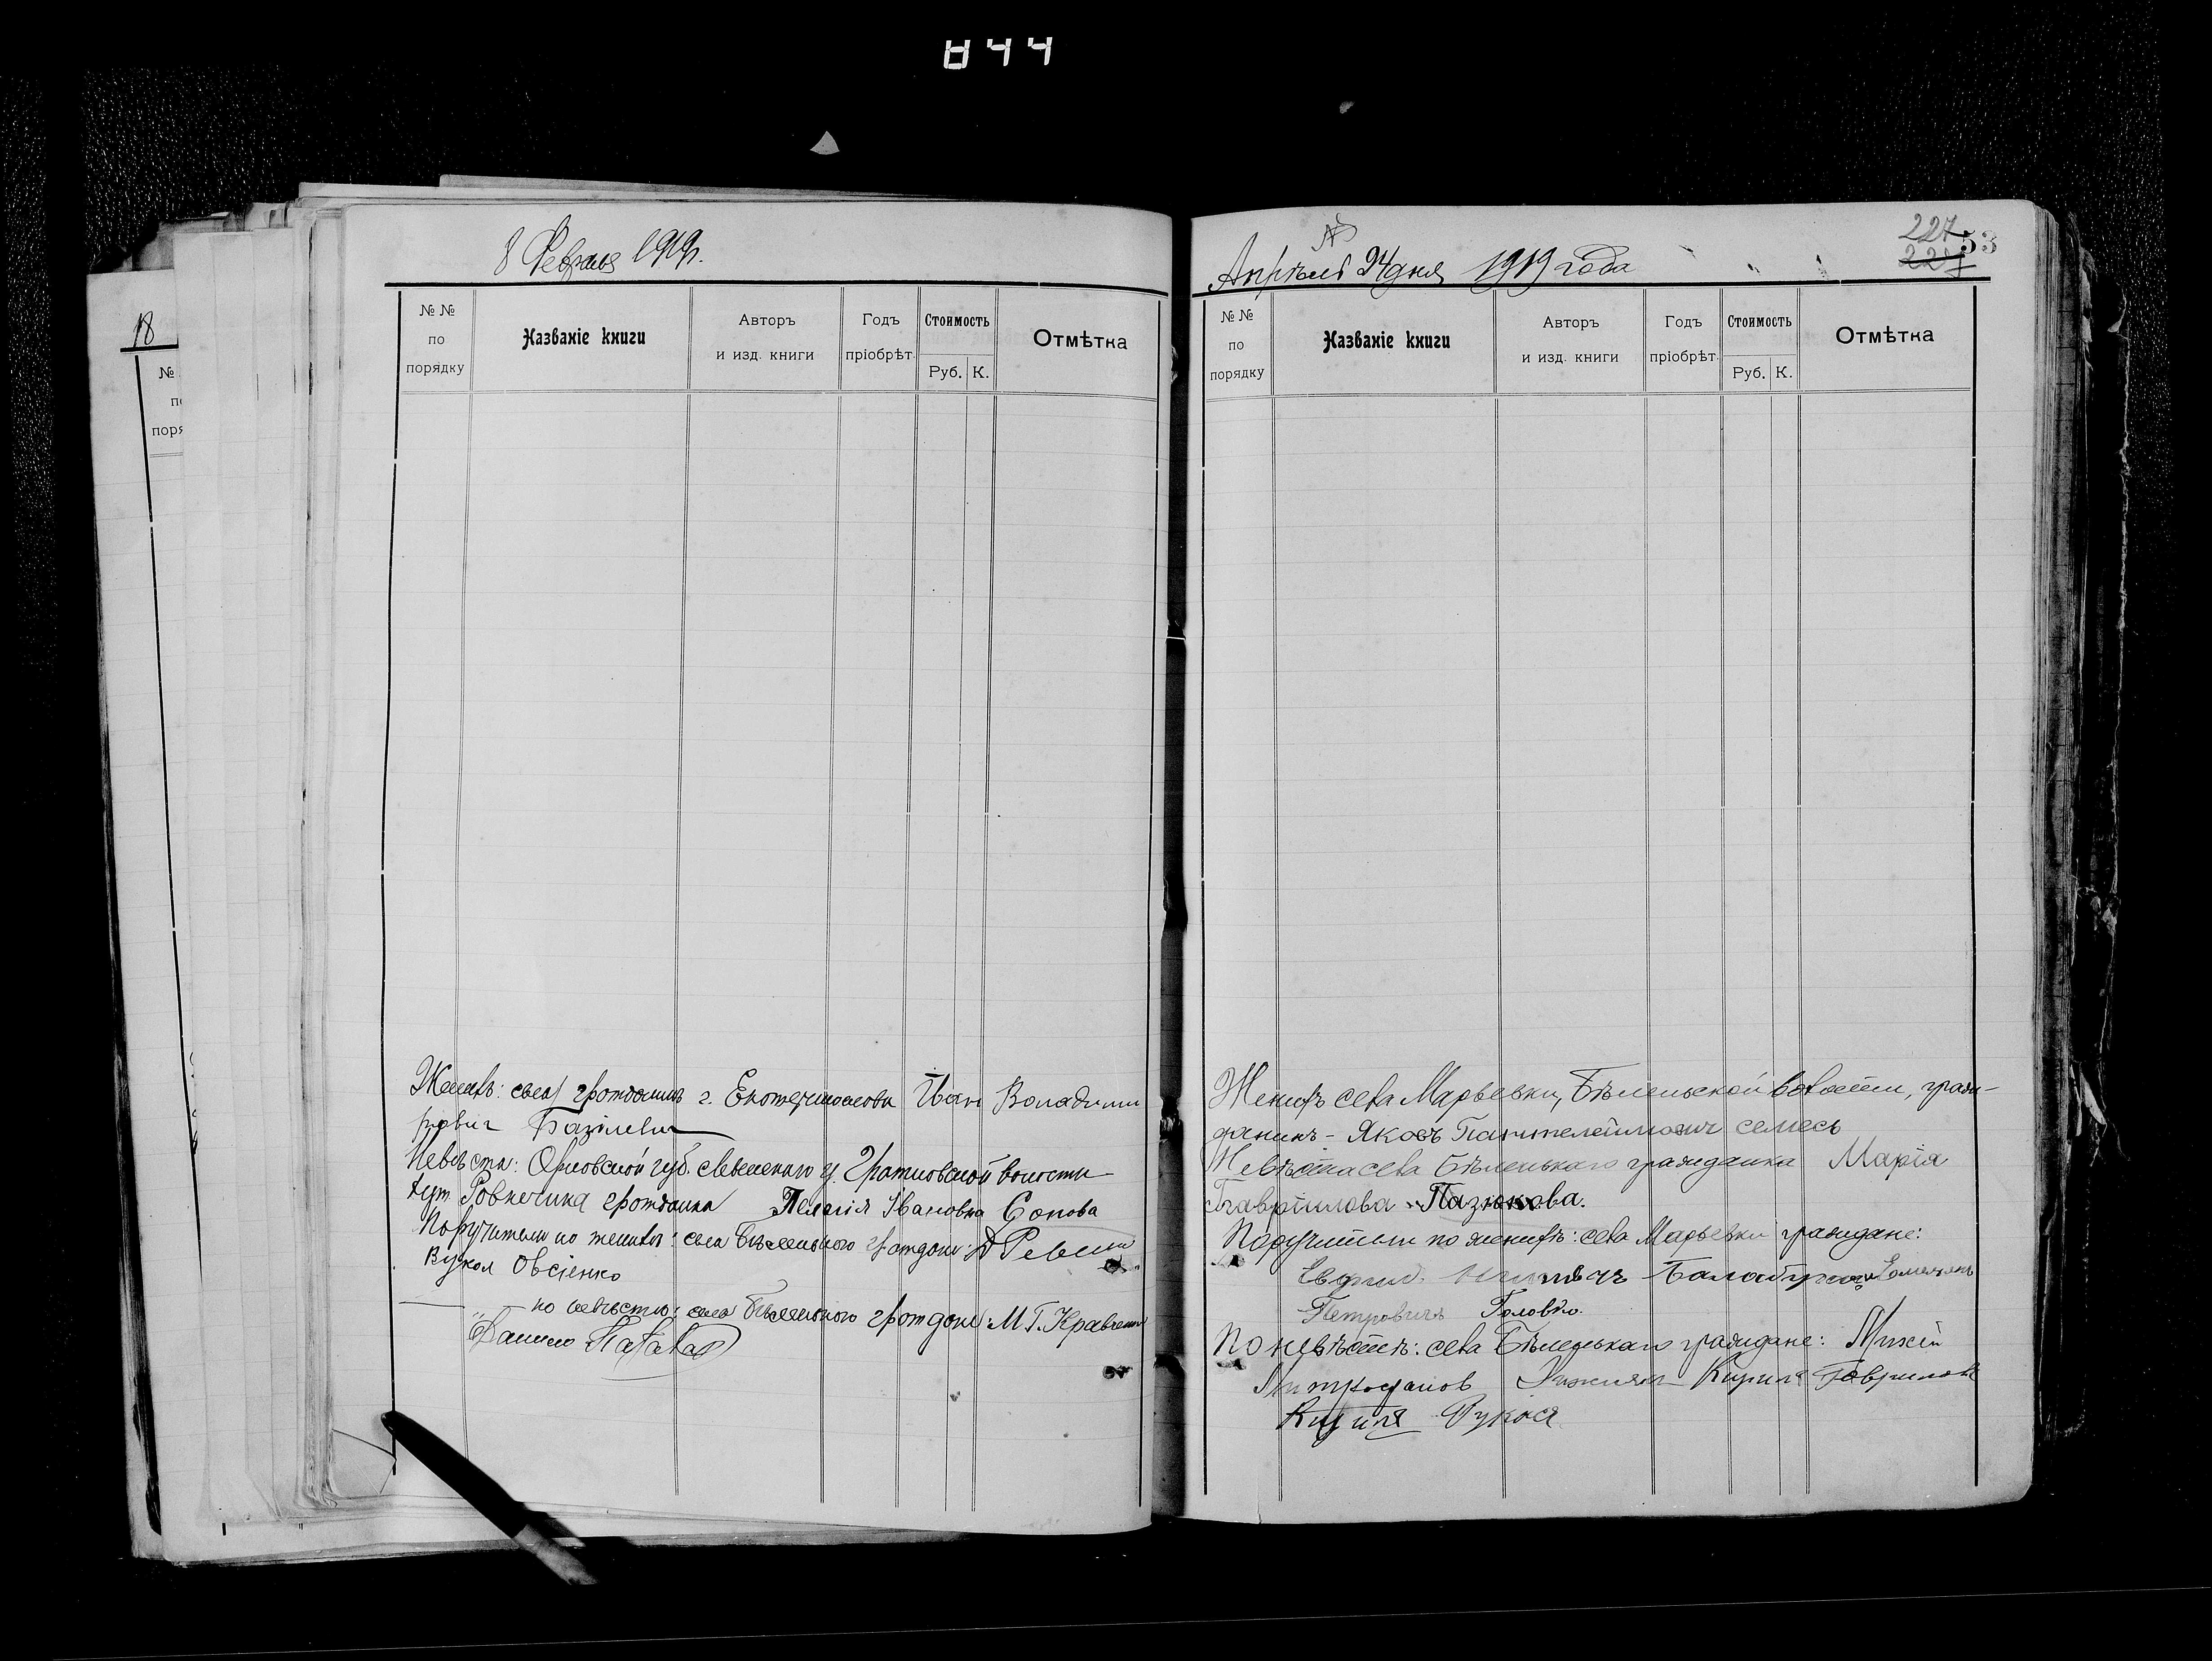 844
18
№
по
поря
8 Февраля 1919 г.
№ №
по
порядку
Названіе книги
Авторъ
и изд. книги
Годъ
пріобрѣт.
Стоимость
Руб. К.
Отмѣтка
Женихъ: села гражданинъ г. Екатеринослова Іван Володими
рович Базілевич
Невѣста: Орловской губ. у. волости
хут. гражданка Пелагія Івановна Сопова
Поручители по женихѣ: села Бѣленького граждане: Д Ревешко
Вукол Овсіенко
по невѣстѣ: села Бѣленького граждане: М. Г. Кравченко
Данило
№
Апрѣля 24 дня 1919 года
227
227
53
№ №
по
порядку
Названіе книги
Авторъ
и изд. книги
Годъ
пріобрѣт.
Стоимость
Руб. К.
Отмѣтка
Женихъ села Марьевки, Бѣленьской волости, граж-
данинъ - Яковъ Пантелеимович семесь
Невѣста села Бѣленькаго гражданка Марія
Гавріилова Пазюкова.
Поручители по женихѣ: села Марьевки граждане:
Петровичъ Головко
По невѣстѣ: села Бѣленькаго граждане:
Митрофанов Кирилъ Гаврилов
Кирилъ